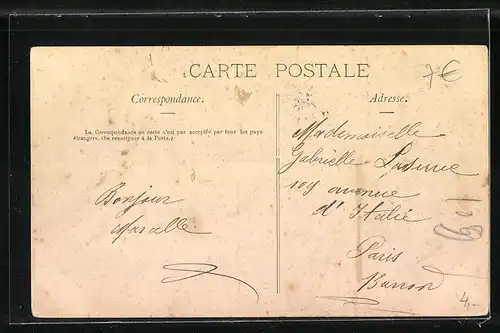 CARTE POSTALE
7€
Correspondance.
Adresse.
La Correspondance au recto n'est pas acceptée par tous les pays
étrangers. (Se renseigner à la Poste.)
Bonjour
Marcelle
Mademoiselle
Gabrielle
109 avenue
d'Italie
Paris
4,-